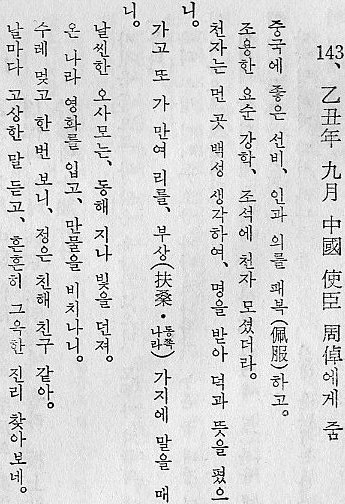 143、乙丑年 九月 中國 使臣 周倬에게 줌
중국에 좋은 선비、인과 의를 패복(佩服)하고。
조용한 요순 강학、조석에 천자 모셨더라。
천자는 먼 곳 백성 생각하여、명을 받아 덕과 뜻을 폈으
니。
가고 또 가 만여 리를、부상(扶桑・동쪽나라) 가지에 말을 매
니。
날쎈한 오사모는、동해 지나 빛을 던져。
온 나라 영화를 입고、만물을 비치나니。
수레 멎고 한 번 보니、정은 친해 친구 같아。
날마다 고상한 말 듣고、흔흔히 그윽한 진리 찾아보네。